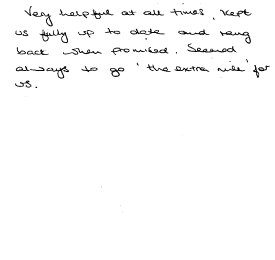 Very helpful at all times, kept
us fully up to date and rang
back when promised. Seemed
always to go 'the extra mile' for
us.